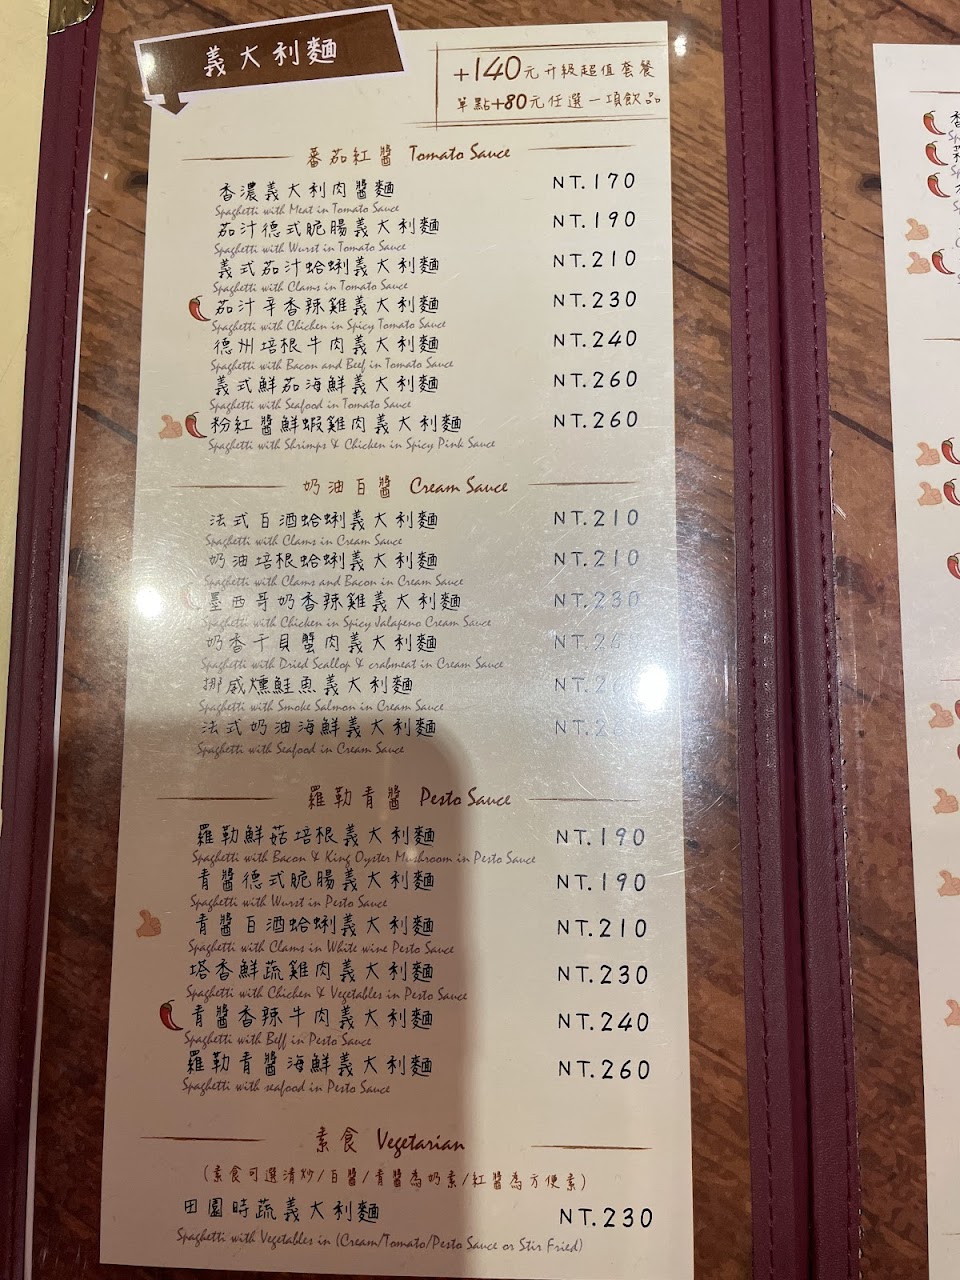 義大利麵
+140元升級超值套餐
單點+80元任選一項飲品
蕃茄紅醬 Tomato Sauce
香濃義大利肉醬麵 NT.170
Spaghetti with Meat in Tomato Sauce
茄汁德式脆腸義大利麵 NT.190
Spaghetti with Wurst in Tomato Sauce
義式茄汁蛤蜊義大利麵 NT.210
Spaghetti with Clams in Tomato Sauce
茄汁辛香辣雞義大利麵 NT.230
Spaghetti with Chicken in Spicy Tomato Sauce
德州培根牛肉義大利麵 NT.240
Spaghetti with Bacon and Beef in Tomato Sauce
義式鮮茄海鮮義大利麵 NT.260
Spaghetti with Seafood in Tomato Sauce
粉紅醬鮮蝦雞肉義大利麵 NT.260
Spaghetti with Shrimps & Chicken in Spicy Pink Sauce
奶油白醬 Cream Sauce
法式白酒蛤蜊義大利麵 NT.210
Spaghetti with Clams in Cream Sauce
奶油培根蛤蜊義大利麵 NT.210
Spaghetti with Clams and Bacon in Cream Sauce
墨西哥奶香辣雞義大利麵 NT.230
Spaghetti with Chicken in Spicy Jalapeno Cream Sauce
奶香干貝蟹肉義大利麵
Spaghetti with Dried Scallop & crabmeat in Cream Sauce
挪威燻鮭魚義大利麵
Spaghetti with Smoke Salmon in Cream Sauce
法式奶油海鮮義大利麵
Spaghetti with Seafood in Cream Sauce
羅勒青醬 Pesto Sauce
羅勒鮮菇培根義大利麵 NT.190
Spaghetti with Bacon & King Oyster Mushroom in Pesto Sauce
青醬德式脆腸義大利麵 NT.190
Spaghetti with Wurst in Pesto Sauce
青醬白酒蛤蜊義大利麵 NT.210
Spaghetti with Clams in White wine Pesto Sauce
塔香鮮蔬雞肉義大利麵 NT.230
Spaghetti with Chicken & Vegetables in Pesto Sauce
青醬香辣牛肉義大利麵 NT.240
Spaghetti with Beff in Pesto Sauce
羅勒青醬海鮮義大利麵 NT.260
Spaghetti with seafood in Pesto Sauce
素食 Vegetarian
(素食可選清炒/白醬/青醬為奶素/紅醬為方便素)
田園時蔬義大利麵 NT.230
Spaghetti with Vegetables in (Cream/Tomato/Pesto Sauce or Stir Fried)